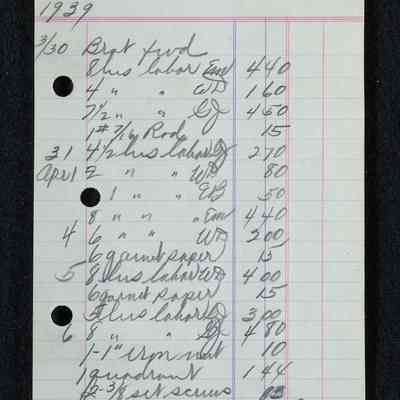 1939
3/30 Brot fwd
8 hrs labor Em 4 40
4 " " WD 1 60
7 1/2 " " GJ 4 50
1# 7/16 Rod 15
31 4 1/2 hrs labor GJ 2 70
April 2 " " WD 80
1 " " EB 50
8 " " Em 4 40
4 6 " " WD 2 00
6 garnet paper 15
5 8 hrs labor WD 4 00
6 garnet paper 15
5 hrs labor GJ 3 00
6 8 " " GJ 4 80
1-1" iron nut 10
1 quadrant 1 44
2-3/8 set screws